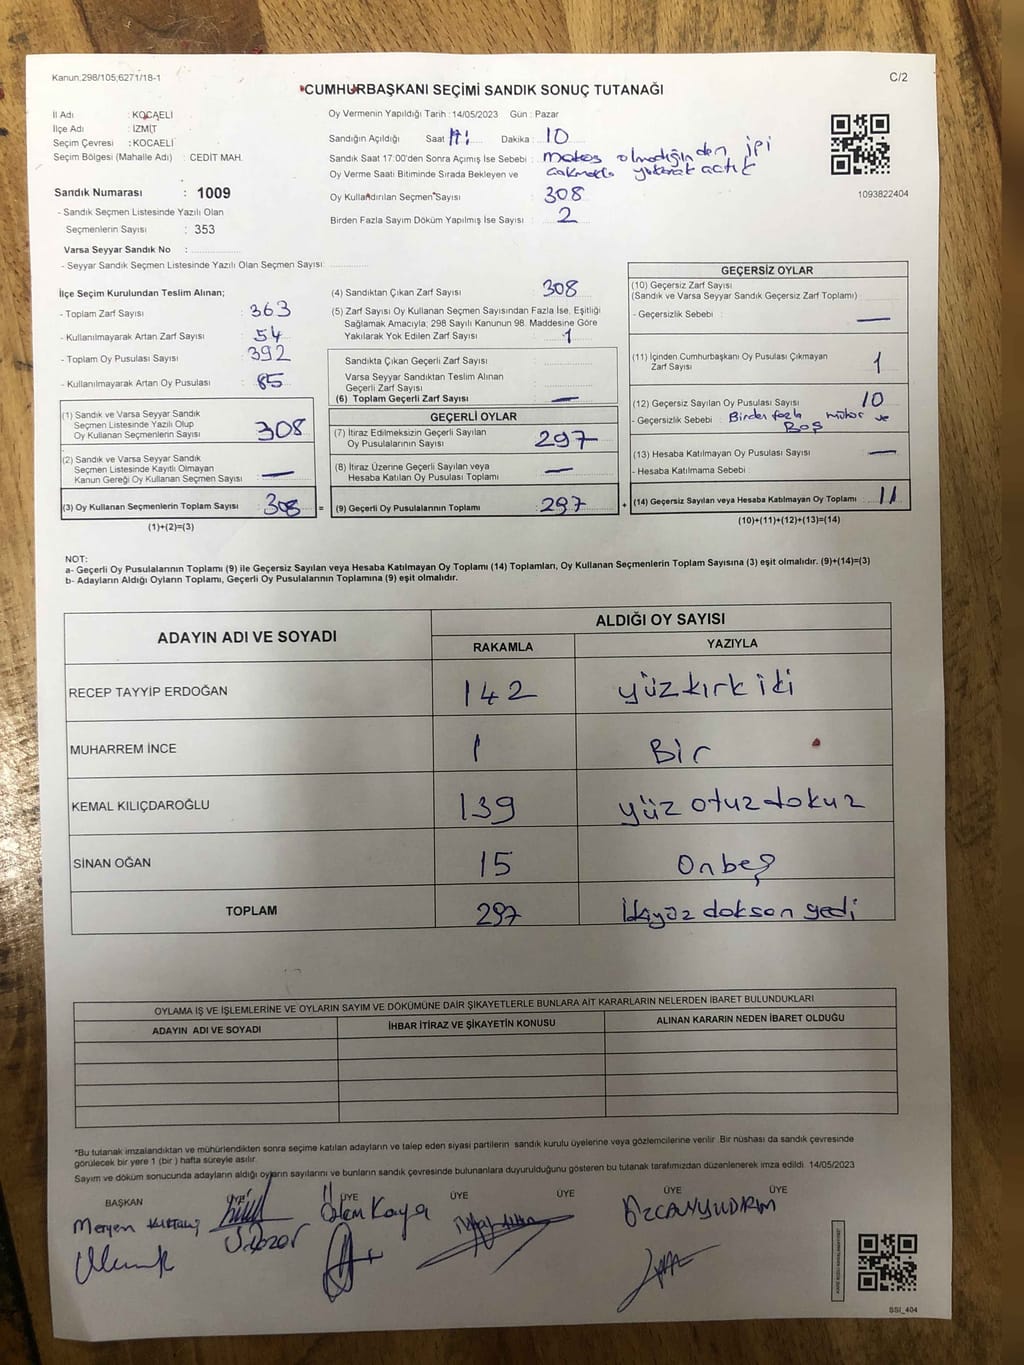 Kanun;298/105;6271/18-1
C/2
CUMHURBAŞKANI SEÇİMİ SANDIK SONUÇ TUTANAĞI
İl Adı : KOCAELİ
İlçe Adı : İZMİT
Seçim Çevresi : KOCAELİ
Seçim Bölgesi (Mahalle Adı) : CEDİT MAH.
Sandık Numarası : 1009
- Sandık Seçmen Listesinde Yazılı Olan
Seçmenlerin Sayısı : 353
Varsa Seyyar Sandık No :
- Seyyar Sandık Seçmen Listesinde Yazılı Olan Seçmen Sayısı:
Oy Vermenin Yapıldığı Tarih : 14/05/2023 Gün : Pazar
Sandığın Açıldığı Saat Dakika : 10
Sandık Saat 17:00'den Sonra Açımış İse Sebebi : makas olmadığından ipi
Oy Verme Saati Bitiminde Sırada Bekleyen ve çakmakla yakarak açtık
Oy Kullandırılan Seçmen Sayısı 308
Birden Fazla Sayım Döküm Yapılmış İse Sayısı : 2
1093822404
İlçe Seçim Kurulundan Teslim Alınan;
- Toplam Zarf Sayısı : 363
- Kullanılmayarak Artan Zarf Sayısı : 54
- Toplam Oy Pusulası Sayısı : 392
- Kullanılmayarak Artan Oy Pusulası : 85
(1) Sandık ve Varsa Seyyar Sandık
Seçmen Listesinde Yazılı Olup
Oy Kullanan Seçmenlerin Sayısı : 308
(2) Sandık ve Varsa Seyyar Sandık
Seçmen Listesinde Kayıtlı Olmayan
Kanun Gereği Oy Kullanan Seçmen Sayısı : —
(3) Oy Kullanan Seçmenlerin Toplam Sayısı : 308 =
(1)+(2)=(3)
(4) Sandıktan Çıkan Zarf Sayısı : 308
(5) Zarf Sayısı Oy Kullanan Seçmen Sayısından Fazla İse, Eşitliği
Sağlamak Amacıyla; 298 Sayılı Kanunun 98. Maddesine Göre
Yakılarak Yok Edilen Zarf Sayısı : 1
Sandıkta Çıkan Geçerli Zarf Sayısı :
Varsa Seyyar Sandıktan Teslim Alınan
Geçerli Zarf Sayısı :
(6) Toplam Geçerli Zarf Sayısı : —
GEÇERLİ OYLAR
(7) İtiraz Edilmeksizin Geçerli Sayılan
Oy Pusulalarının Sayısı : 297
(8) İtiraz Üzerine Geçerli Sayılan veya
Hesaba Katılan Oy Pusulası Toplamı : —
(9) Geçerli Oy Pusulalarının Toplamı : 297 +
GEÇERSİZ OYLAR
(10) Geçersiz Zarf Sayısı
(Sandık ve Varsa Seyyar Sandık Geçersiz Zarf Toplamı) :
- Geçersizlik Sebebi : —
(11) İçinden Cumhurbaşkanı Oy Pusulası Çıkmayan
Zarf Sayısı : 1
(12) Geçersiz Sayılan Oy Pusulası Sayısı : 10
- Geçersizlik Sebebi : Birden fazla mühür ve
Boş
(13) Hesaba Katılmayan Oy Pusulası Sayısı : —
- Hesaba Katılmama Sebebi :
(14) Geçersiz Sayılan veya Hesaba Katılmayan Oy Toplamı : 11
(10)+(11)+(12)+(13)=(14)
NOT:
a- Geçerli Oy Pusulalarının Toplamı (9) ile Geçersiz Sayılan veya Hesaba Katılmayan Oy Toplamı (14) Toplamları, Oy Kullanan Seçmenlerin Toplam Sayısına (3) eşit olmalıdır. (9)+(14)=(3)
b- Adayların Aldığı Oyların Toplamı, Geçerli Oy Pusulalarının Toplamına (9) eşit olmalıdır.
ADAYIN ADI VE SOYADI
ALDIĞI OY SAYISI
RAKAMLA YAZIYLA
RECEP TAYYİP ERDOĞAN 142 yüzkırk iki
MUHARREM İNCE 1 Bir
KEMAL KILIÇDAROĞLU 139 yüz otuz dokuz
SİNAN OĞAN 15 Onbeş
TOPLAM 297 İkiyüz doksan yedi
OYLAMA İŞ VE İŞLEMLERİNE VE OYLARIN SAYIM VE DÖKÜMÜNE DAİR ŞİKAYETLERLE BUNLARA AİT KARARLARIN NELERDEN İBARET BULUNDUKLARI
ADAYIN ADI VE SOYADI İHBAR İTİRAZ VE ŞİKAYETİN KONUSU ALINAN KARARIN NEDEN İBARET OLDUĞU
*Bu tutanak imzalandıktan ve mühürlendikten sonra seçime katılan adayların ve talep eden siyasi partilerin sandık kurulu üyelerine veya gözlemcilerine verilir. Bir nüshası da sandık çevresinde
görülecek bir yere 1 (bir) hafta süreyle asılır.
Sayım ve döküm sonucunda adayların aldığı oyların sayılarını ve bunların sandık çevresinde bulunanlara duyurulduğunu gösteren bu tutanak tarafımızdan düzenlenerek imza edildi. 14/05/2023
BAŞKAN ÜYE ÜYE ÜYE ÜYE ÜYE ÜYE
Meryem Özlem Kaya ÖZCAN YILDIRIM
SSI_404